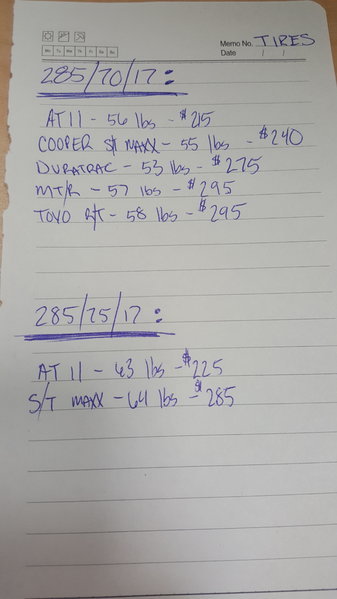 Memo No. TIRES
Mo Tu We Th Fr Sa Su
Date / /
285/70/17:
AT II - 56 lbs - $215
COOPER S/T MAXX - 55 lbs - $240
DURATRAC - 53 lbs - $275
MT/R - 57 lbs - $295
TOYO R/T - 58 lbs - $295
285/75/17:
AT II - 63 lbs - $225
S/T MAXX - 64 lbs - $285